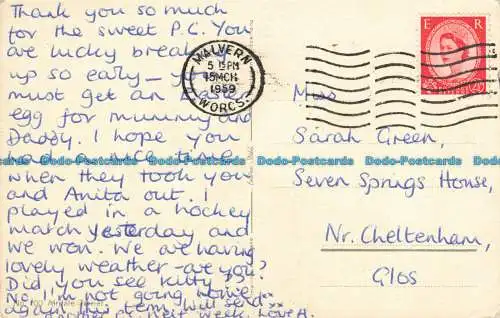 Thank you so much
for the sweet P.C. You
are lucky breaking
up so early - you
must get an Easter
egg for mummy and
Daddy. I hope you
had a nice time
when they took you
and Anita out. I
played in a hockey
march yesterday and
we won. We are having
lovely weather - are you?
Did you see kitty
No, I'm not going home
again this term. Will send
next week. Love A.
MALVERN
5 15 PM
15 MCH
1959
WORCS.
E R
Miss
Sarah Green,
Seven Springs House,
Nr. Cheltenham,
Glos
Dodo-Postcards Dodo-Postcards Dodo-Postcards